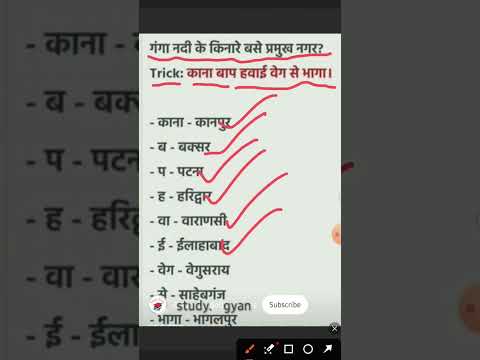 गंगा नदी के किनारे बसे प्रमुख नगर?
Trick: काना बाप हवाई वेग से भागा।
- काना - कानपुर
- ब - बक्सर
- प - पटना
- ह - हरिद्वार
- वा - वाराणसी
- ई - ईलाहाबाद
- वेग - वेगुसराय
- से - साहेबगंज
- भागा - भागलपुर
study. gyan
Subscribe
- काना -
- ब - बक्स
- प - पटन
- ह - हरिद्व
- वा - वारा
- ई - ईलाह